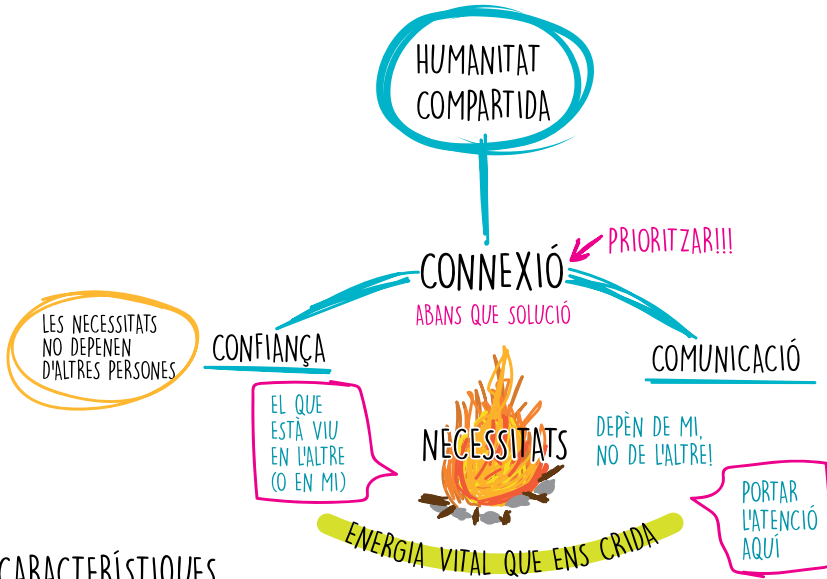 HUMANITAT
COMPARTIDA
PRIORITZAR!!!
CONNEXIÓ
ABANS QUE SOLUCIÓ
LES NECESSITATS
NO DEPENEN
D'ALTRES PERSONES
CONFIANÇA
COMUNICACIÓ
EL QUE
ESTÀ VIU
EN L'ALTRE
(O EN MI)
NECESSITATS
DEPÈN DE MI,
NO DE L'ALTRE!
PORTAR
L'ATENCIÓ
AQUÍ
ENERGIA VITAL QUE ENS CRIDA
CARACTERÍSTIQUES